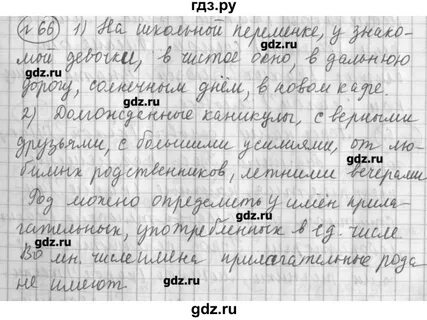 №66 1) На школьной переменке, у знако-
мой девочки, в чистое окно, в дальнюю
дорогу, солнечным днём, в новом кафе.
2) Долгожданные каникулы, с верными
друзьями, с большими усилиями, от лю-
бимых родственников, летними вечерами
Род можно определить у имён прила-
гательных, употребленных в ед. числе
Во мн. числе имена прилагательные рода
не имеют.
gdz.ru gdz.ru
gdz.ru gdz.ru
gdz.ru gdz.ru
gdz.ru gdz.ru
gdz.ru gdz.ru
gdz.ru